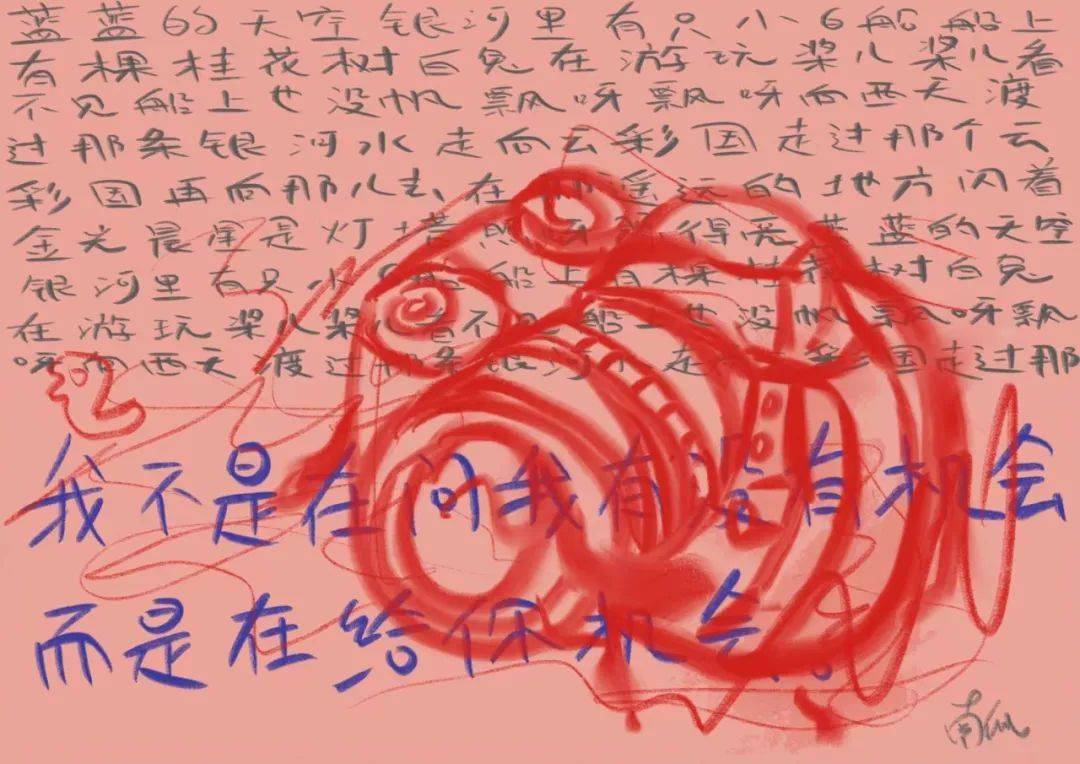 蓝蓝的天空银河里有只小白船船上
有棵桂花树白兔在游玩桨儿桨儿看
不见船上也没帆飘呀飘呀向西天渡
过那条银河水走向云彩国走过那个云
彩国再向那儿去在遥远的地方闪着
金光晨星是灯塔照得亮蓝蓝的天空
银河里有只小船船上有棵桂花树白兔
在游玩桨儿桨儿看不见船上也没帆飘呀飘
呀向西天渡过那条银河水走云彩国走过那
我不是在问我有没有机会
而是在给你机会
南瓜